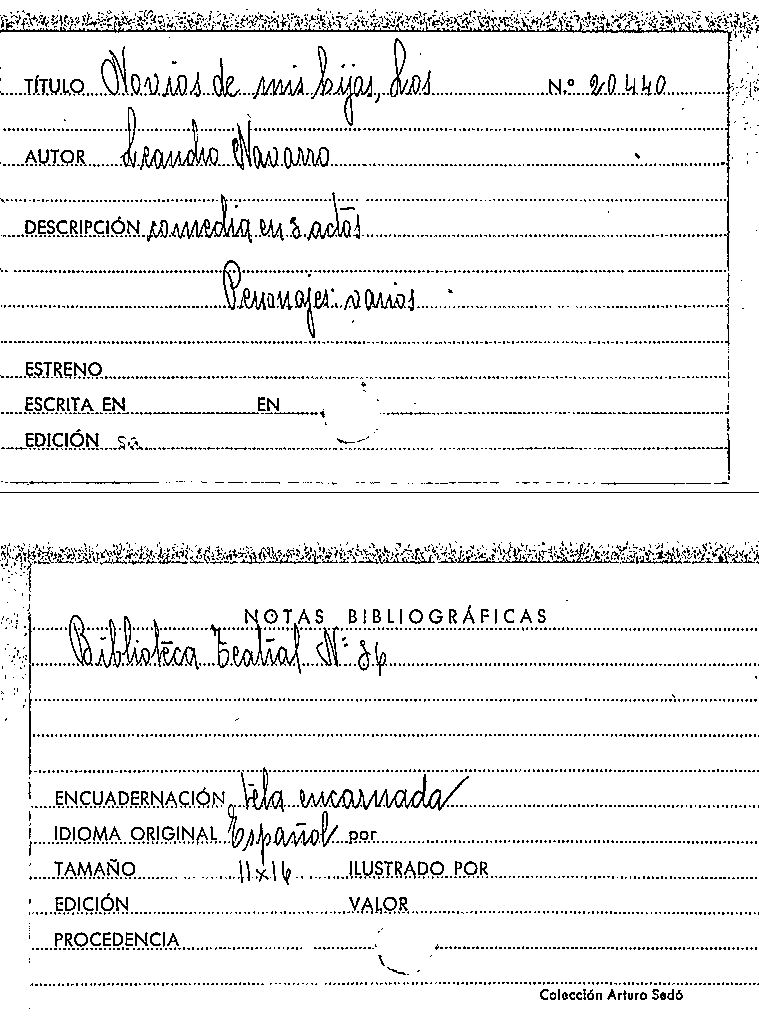 TÍTULO Novios de mis hijas, Los N.º 20440
AUTOR Leandro Navarro
DESCRIPCIÓN comedia en 3 actos
Personajes: varios
ESTRENO
ESCRITA EN EN
EDICIÓN sa
NOTAS BIBLIOGRÁFICAS
Biblioteca Teatral Nº 86
ENCUADERNACIÓN tela encarnada
IDIOMA ORIGINAL Español por
TAMAÑO 11x16 ILUSTRADO POR
EDICIÓN VALOR
PROCEDENCIA
Colección Arturo Sedó